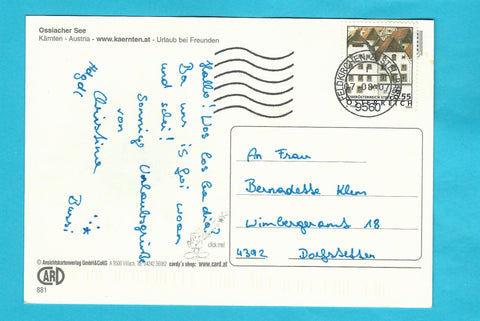 Ossiacher See
Kärnten - Austria - www.kaernten.at - Urlaub bei Freunden
Hallo! Wos los ba dia?
Ba uns is foi woam
und schei!
Sonnige Urlaubsgrüße
von
Christina
Bussi
FELDKIRCHEN
07
9560
55
ÖSTERREICH
An Frau
Bernadette Klem
Wimbergeramt 18
4392 Dorfstetten
click me!
© Ansichtskartenverlag GmbH&CoKG A 9500 Villach, Tel. 04242 39062 cardy's shop: www.card.at
CARD
881